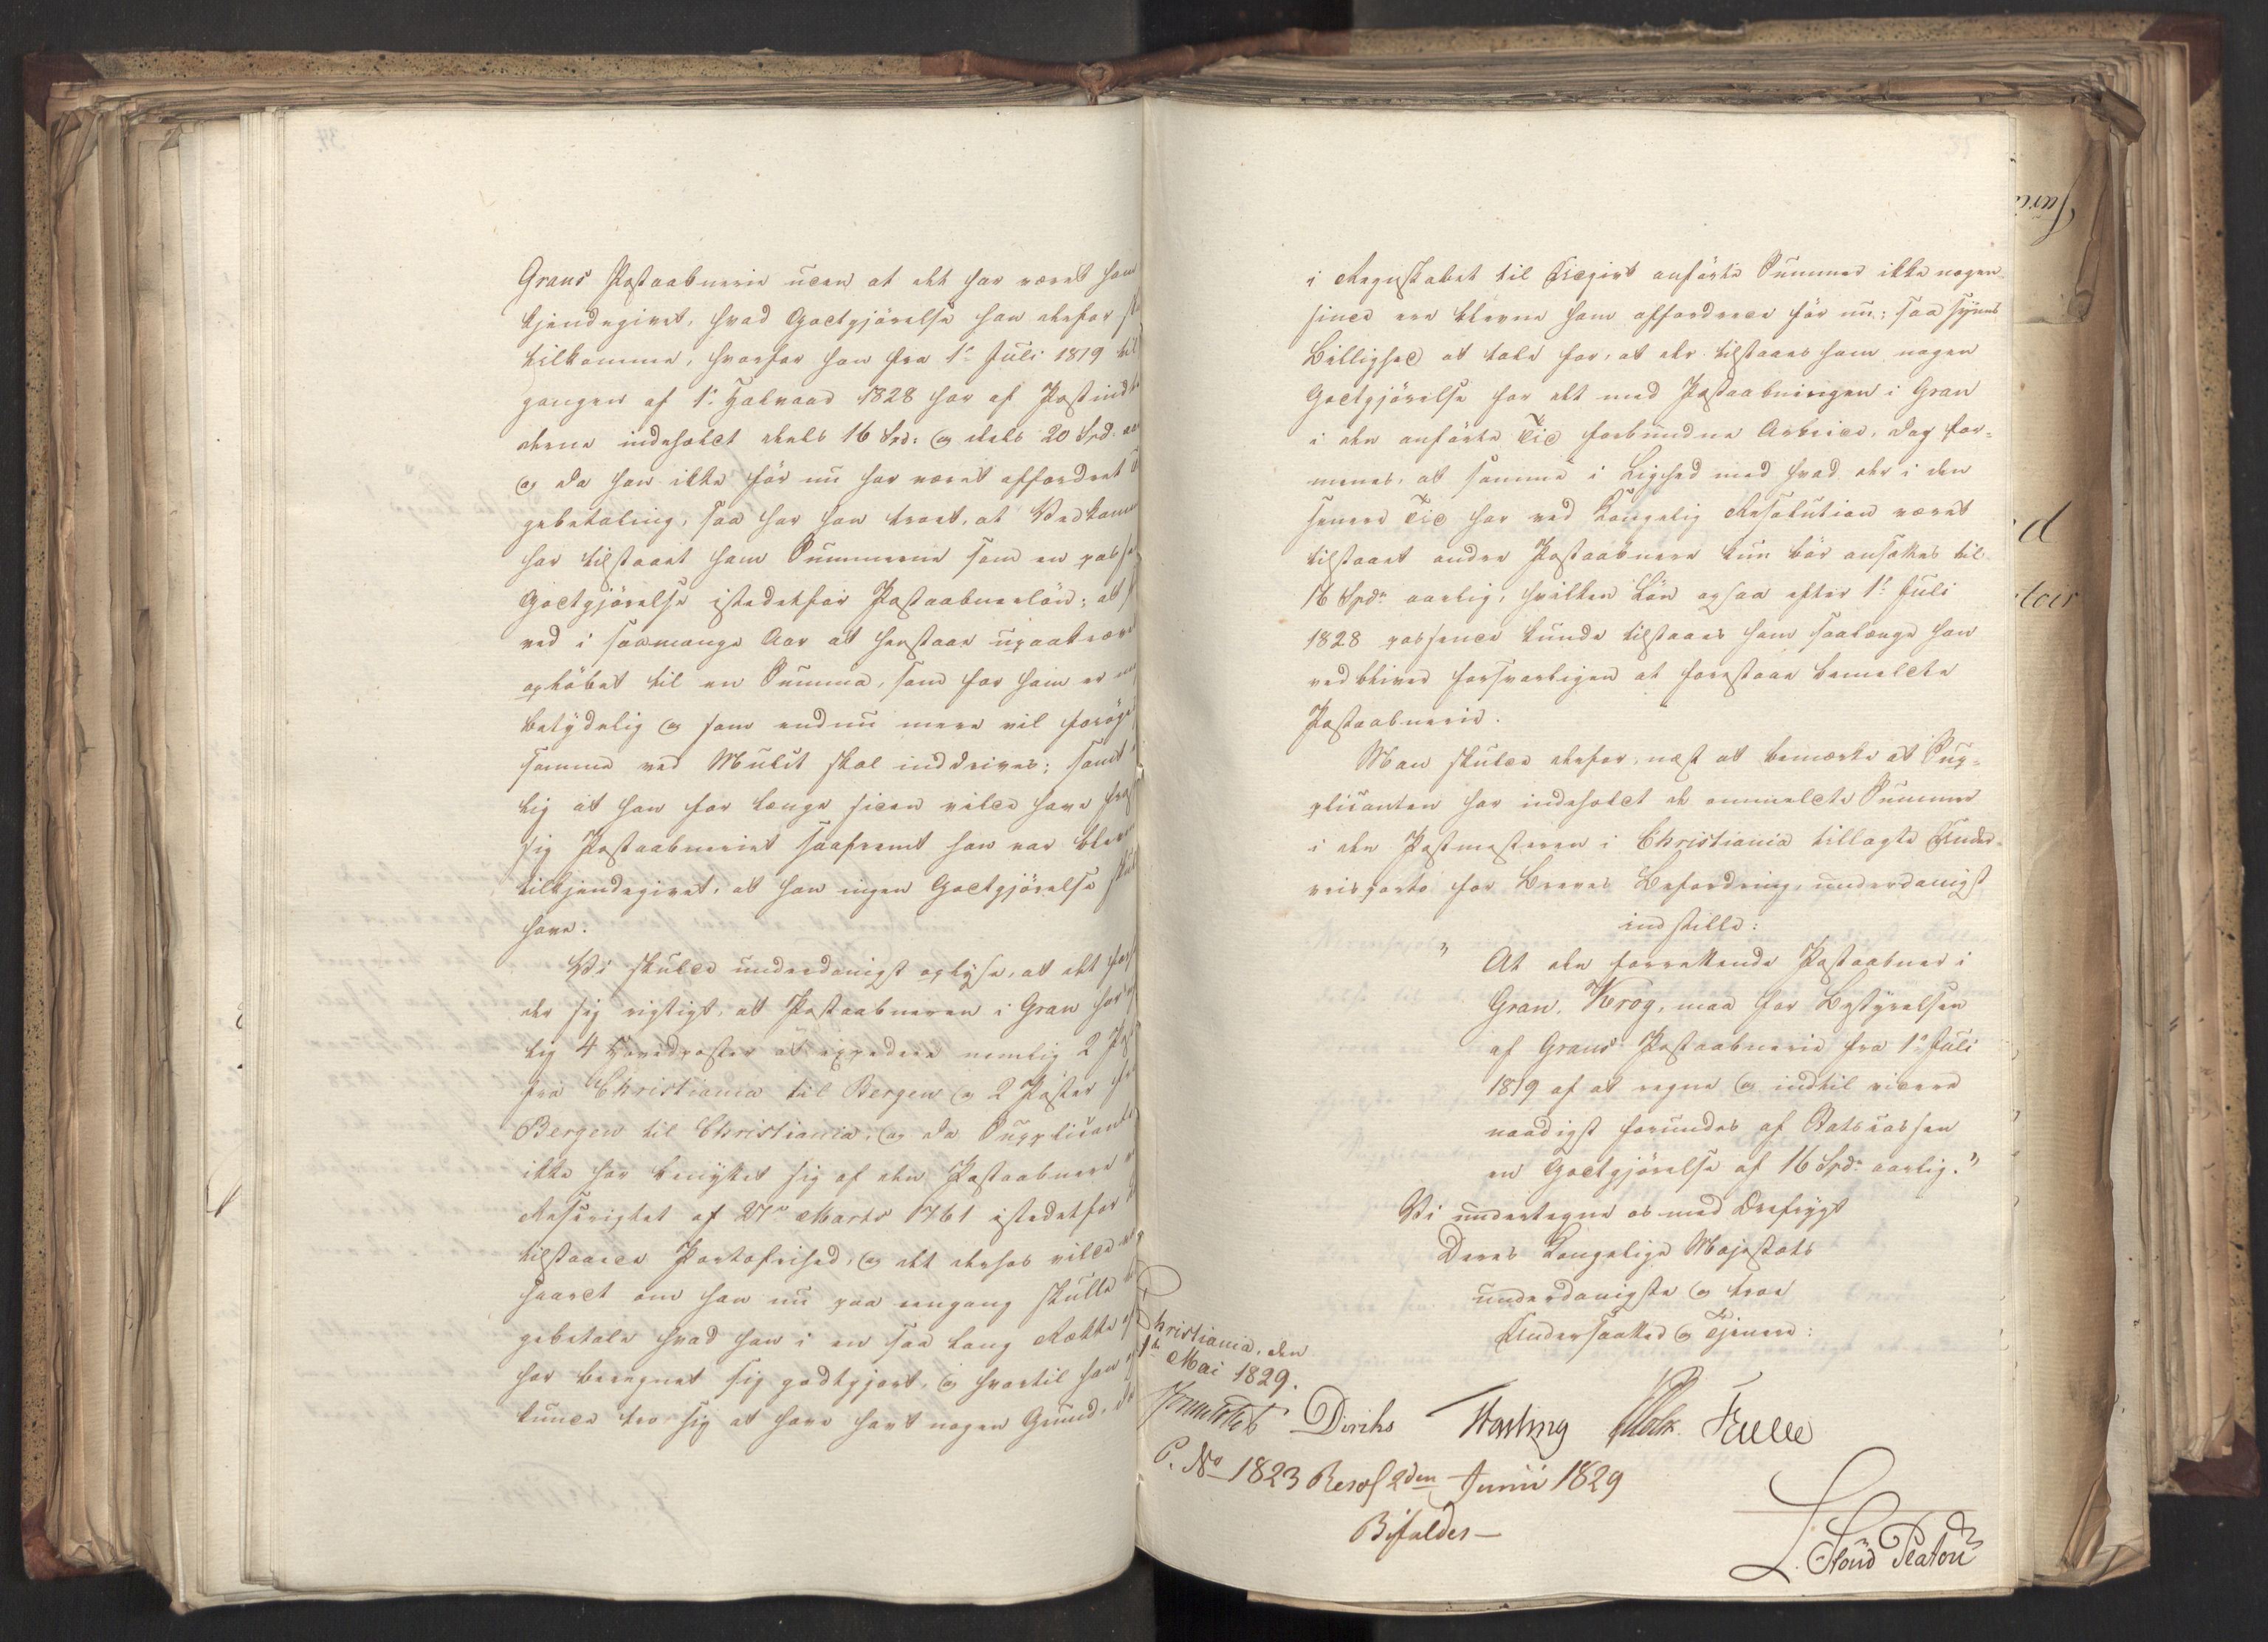 Grans Postaabnerie uden at det har været ham
kjendegivet, hvad Godtgjörelse han derfor
tilkomme, hvorfor han fra 1ste Juli 1819 til
gangen af 1ste Halvaar 1828 har af Postindt
terne indeholdt deels 16 Spd: og deels 20 Spd:
og da han ikke før nu har været affordret
gebetaling, saa har han troet, at Vedkom
har tilstaaet ham Summerne som en pass
Godtgjörelse istedetfor Postaabnerlön; at
ved i saamange Aar at henstaae upaatalt
oplöbet til en Summa, som for ham er
betydelig og som endnu mere vil foröge
samme ved Mulct skal inddrives; samt
lig at han for længe siden vilde have
sig Postaabneriet saafremt han var bleven
tilkjendegivet, at han ingen Godtgjörelse
have.
Vi skulde underdanigst oplyse, at det
der sig rigtigt, at Postaabneren i Gran har
lig 4 Hovedposter at expedere nemlig 2
fra Christiania til Bergen og 2 Poster
Bergen til Christiania, og da Supplicanten
ikke har benyttet sig af den Postaabnere
Rescriptet af 27de Marts 1761 istedetfor
tilstaaede Portofrihed, og det derhos vilde
haardt om han nu paa eengang skulle
gebetale hvad han i en saa lang Række
har beregnet sig godtgjort, og hvortil han
kunde troe sig at have havt nogen Grund,
i Regnskabet til Udgivt anförte Summer ikke nogen-
sinde ere blevne ham affordrede för nu; saa synes
Billighed at tale for, at der tilstaaes ham nogen
Godtgjörelse for det med Postaabningen i Gran
i den anförte Tid forbundne Arbeide, dog for-
menes, at samme i Liighed med hvad der i den
senere Tid har ved Kongelig Resolution været
tilstaaet andre Postaabnere kun bör ansættes til
16 Spdr aarlig, hvilken Lön ogsaa efter 1ste Juli
1828 passende kunde tilstaaes ham saalænge han
vedbliver forsvarligen at forestaae bemeldte
Postaabnerie.
Man skulde derfor, næst at bemærke at Sup-
plicanten har indeholdt de ommeldte Summer
i den Postmesteren i Christiania tillagte Under-
veisporto for Breves Befordring, underdanigst
indstille:
" At den forrettende Postaabner i
Gran, Krog, maa for Bestyrelsen
af Grans Postaabnerie fra 1ste Juli
1819 af at regne og indtil videre
naadigst forundes af Statscassen
en Godtgjörelse af 16 Spdr aarlig."
Vi undertegne os med Ærefrygt
Deres Kongelige Majestæts
underdanigste og troe
Undersaatter og Tjenere:
Christiania, den
1ste Mai 1829.
Diriks Fasting Holst
P. No 1823 Resol 2den Junii 1829
Bifaldes —
L. Stoud Platou